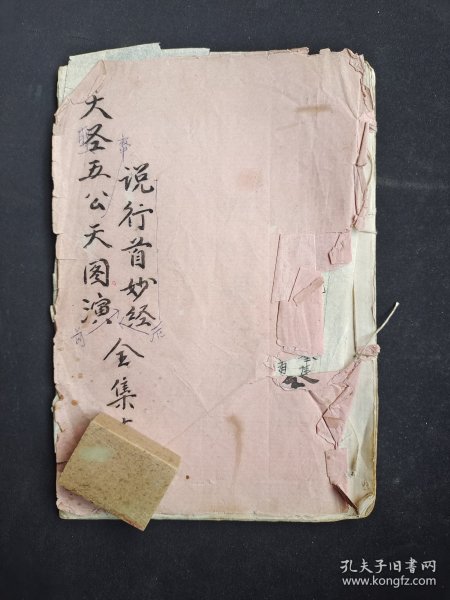 大圣五公天图演
说行首妙经全集
孔夫子旧书网
www.kongfz.com